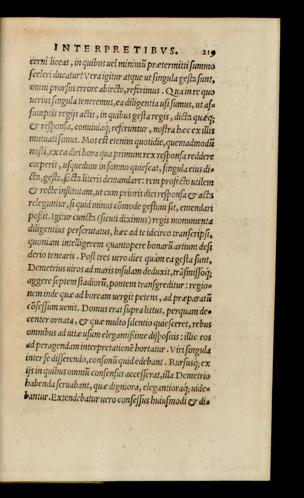 INTERPRETIBVS. 219
cerni liceat, in quibus uel minimũ prætermitti summo
sceleri ducatur! Vera igitur atque ut singula gesta sunt,
omni prorsus errore abiecto, restrimus. Qua in re quo
uerius singula teneremus, ea diligentia usi sumus, ut as-
sumptis regijs actis, in quibus gesta regis, dicta quæq;
& responsa, conuiuiaq; referuntur, nostra hæc ex illis
mutuati simus. Mos est etenim quotidie, quemadmodũ
nosti, ex ea die hora qua primum rex responsa reddere
cœperit, usquedum in somno quiescat, singula eius di-
cta, gesta, facta literis demandare: rem profecto utilem
& recte institutam, ut cum prioris diei responsa & acta
releguntur, si quid minus cõmode gestum sit, emendari
possit. Igitur cuncta (sicuti diximus) regis monumenta
diligentius perscrutatus, hæc ad te idcirco transcripsi,
quoniam intelligerem quantopere bonarũ artium desi
derio tenearis. Post tres uero dies quàm ea gesta sunt,
Demetrius uiros ad maris insulam deduxit, trãsmissoq;
aggere septem stadiorũ, pontem transgreditur: regio-
nem inde quæ ad boream uergit petens, ad præparatũ
cõsessum uenit. Domus erat supra littus, perquam de-
center ornata, & quæ multo silentio quiesceret, rebus
omnibus ad uitæ usum elegantissime dispositis: illic eos
ad peragendam interpretationẽ hortatur. Viri singula
inter se disserendo, consonũ quid edebant. Rursusq; ex
ijs in quibus omniũ consensus accesserat, illa Demetrio
habenda seruabant, quæ digniora, elegantioraq; uide-
bantur. Extendebatur uero consessus huiusmodi & di-